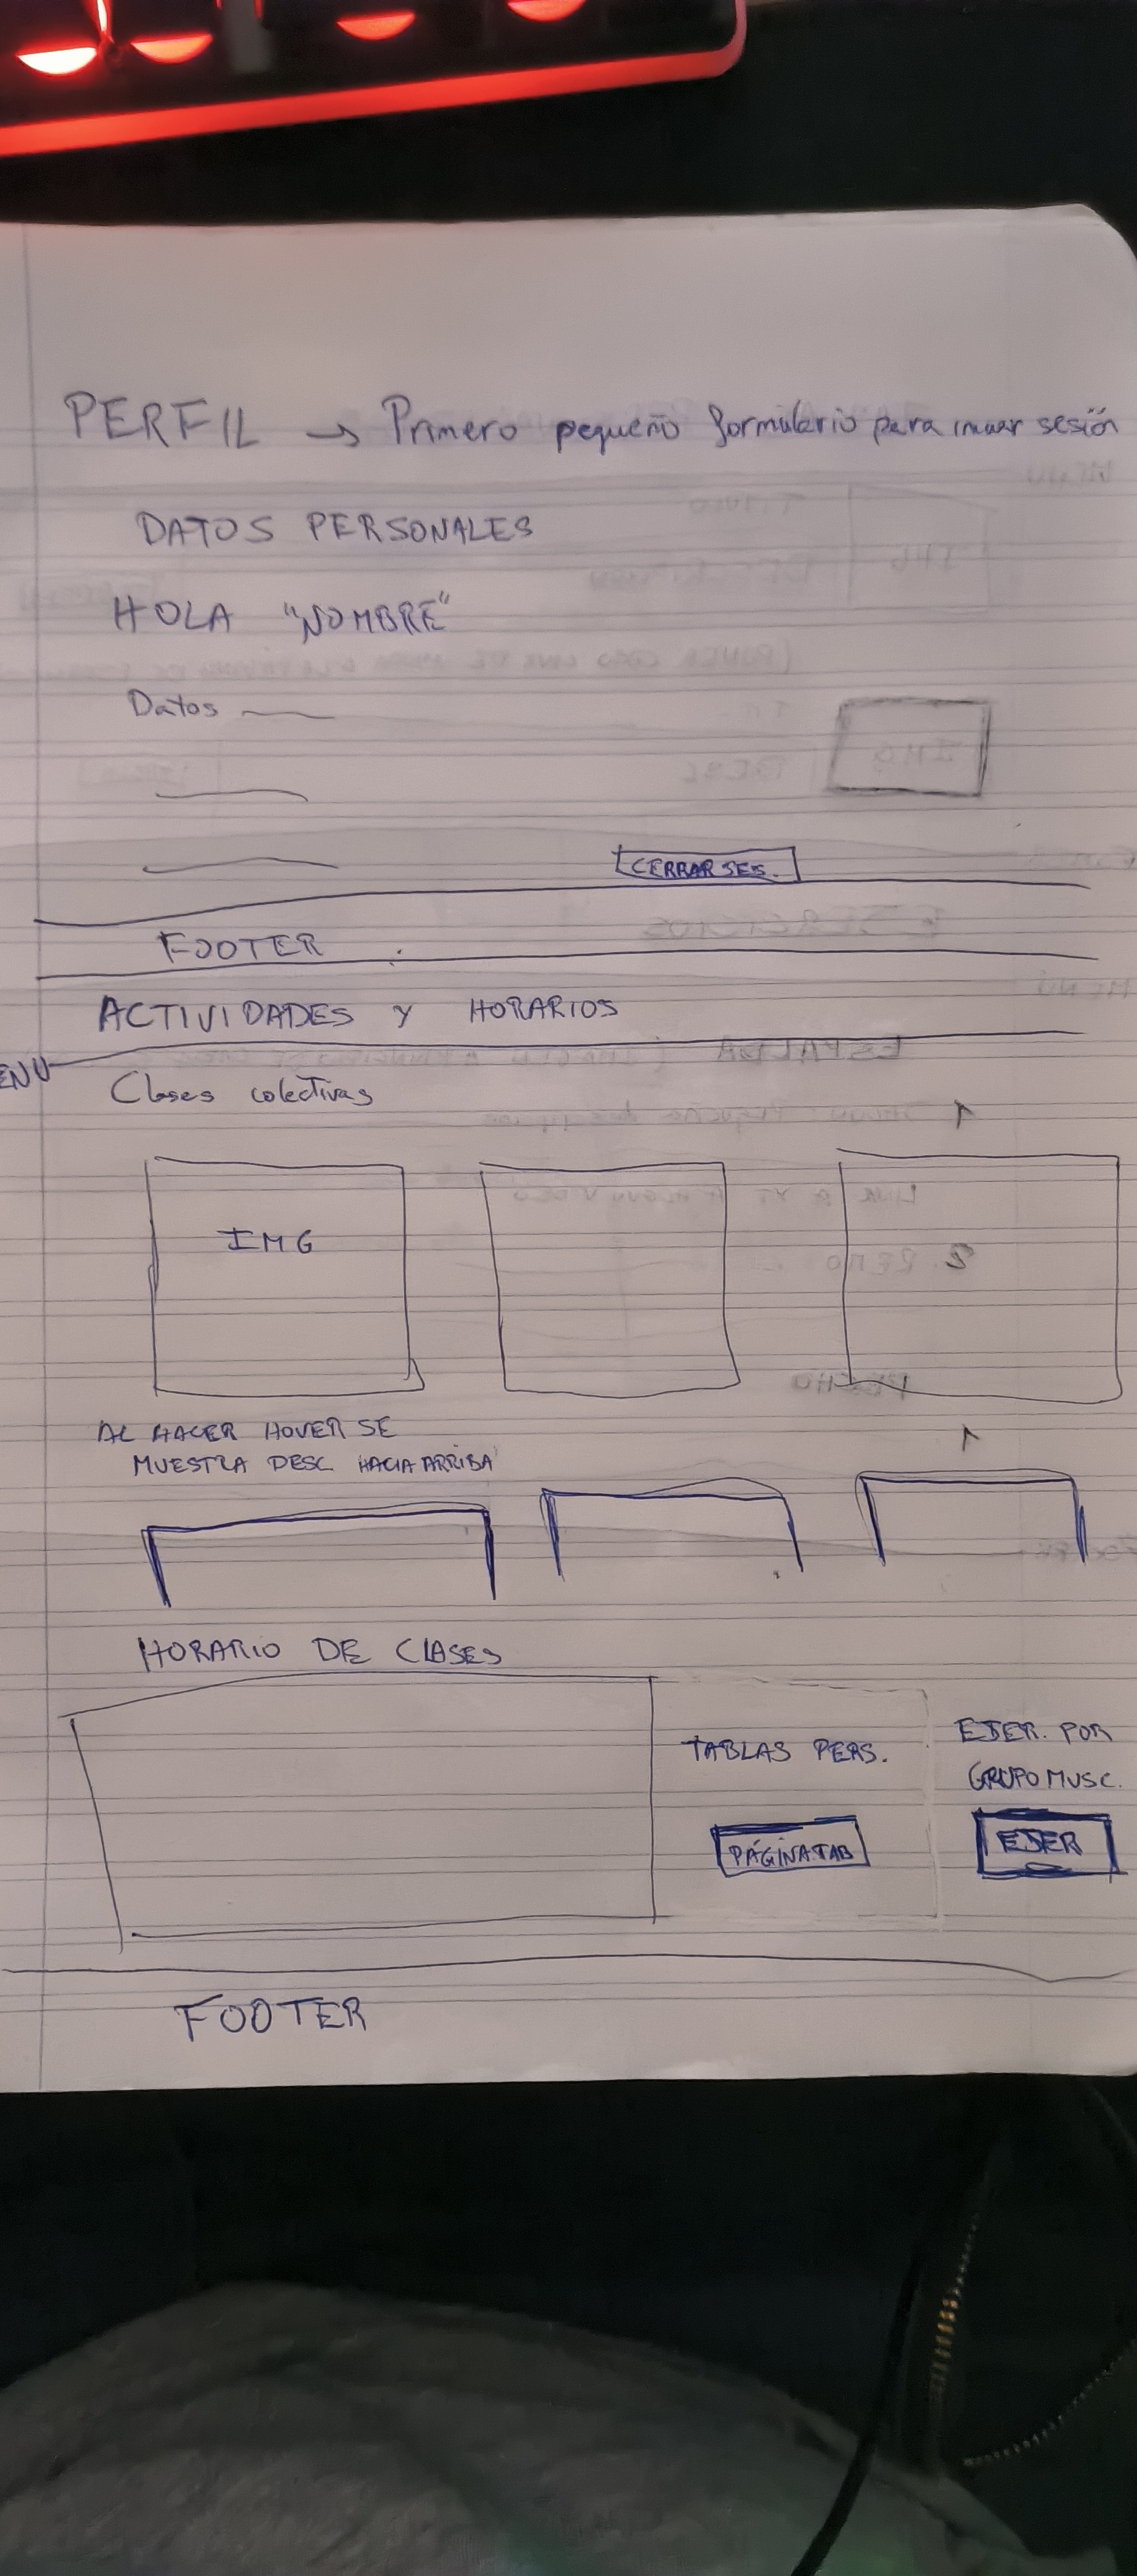 PERFIL → Primero pequeño formulario para iniciar sesión
DATOS PERSONALES
HOLA "NOMBRE"
Datos
CERRAR SES.
FOOTER
ACTIVIDADES Y HORARIOS
ENU
Clases colectivas
IMG
AL HACER HOVER SE
MUESTRA DESC. HACIA ARRIBA
HORARIO DE CLASES
TABLAS PERS.
EJER. POR
GRUPO MUSC.
PÁGINA TAB
EJER
FOOTER